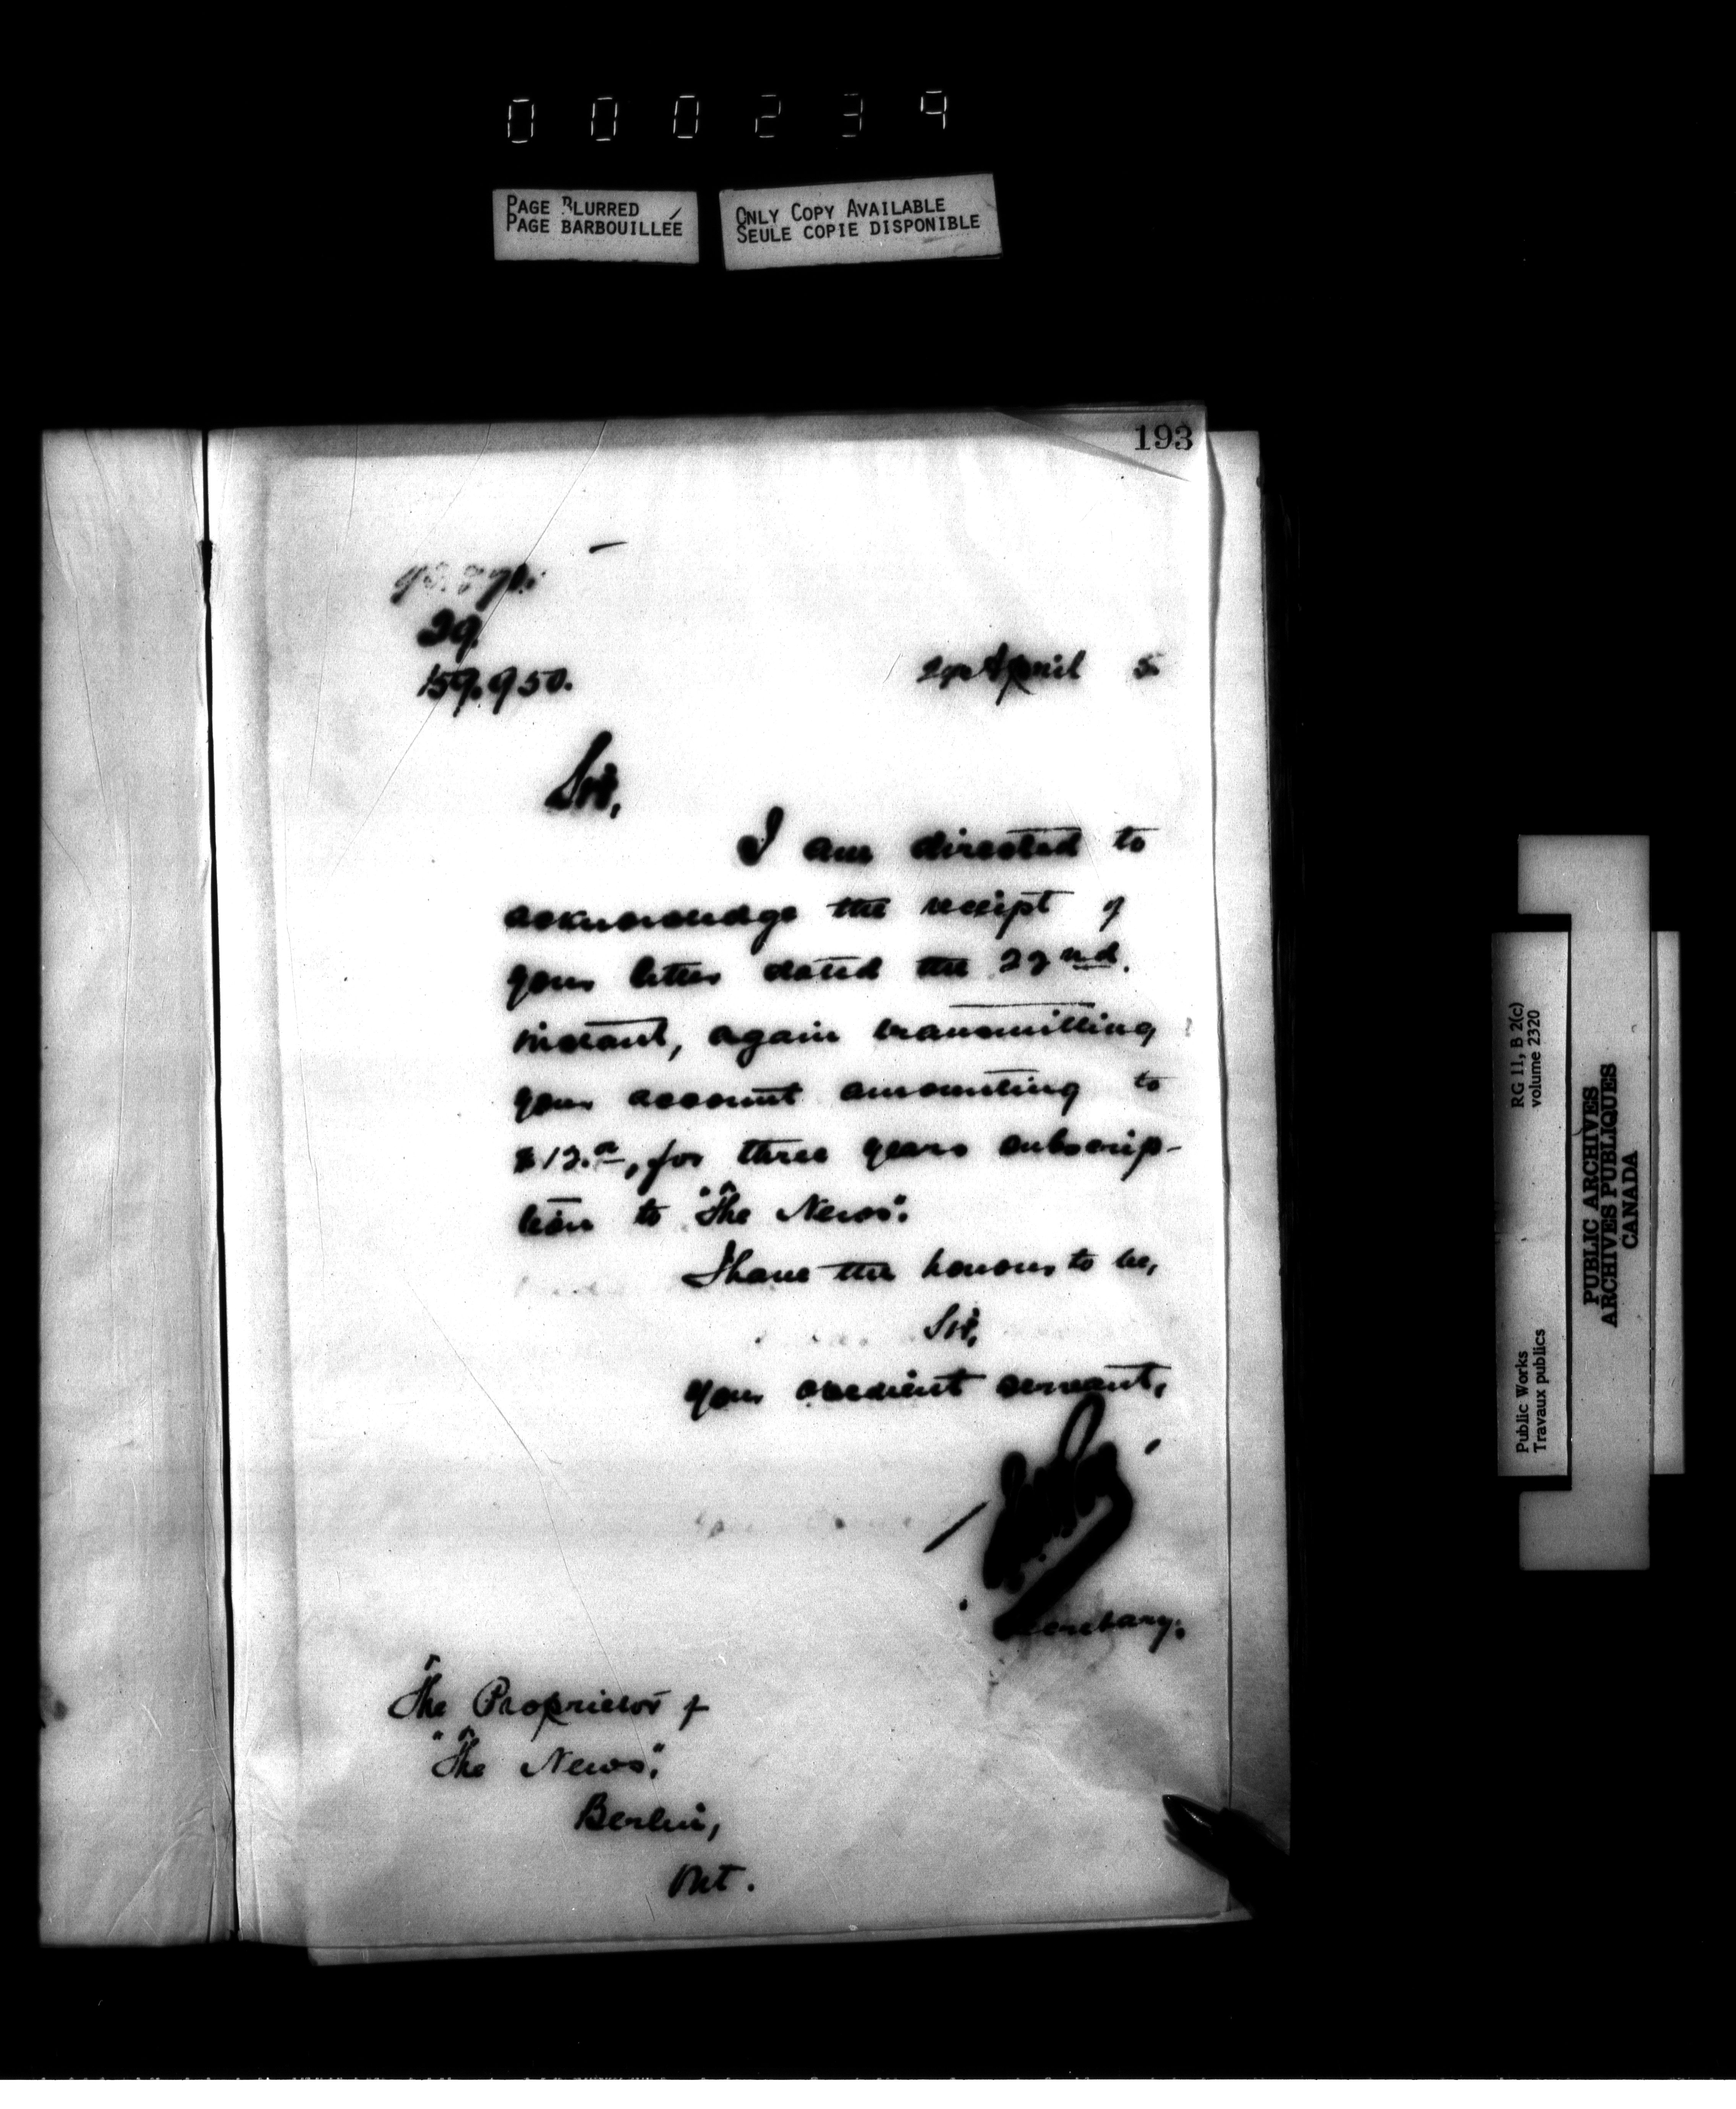 000239
PAGE BLURRED
PAGE BARBOUILLÉE
ONLY COPY AVAILABLE
SEULE COPIE DISPONIBLE
193
39.
159.950.
April 5.
Sir,
I am directed to
acknowledge the receipt of
your letter dated the 22nd.
instant, again transmitting
your account amounting to
$12.00, for three years subscrip-
tion to "The News".
I have the honour to be,
Sir,
Your obedient servant,
Secretary.
The Proprietor of
"The News",
Berlin,
Ont.
RG 11, B 2(c)
volume 2320
Public Works
Travaux publics
PUBLIC ARCHIVES
ARCHIVES PUBLIQUES
CANADA